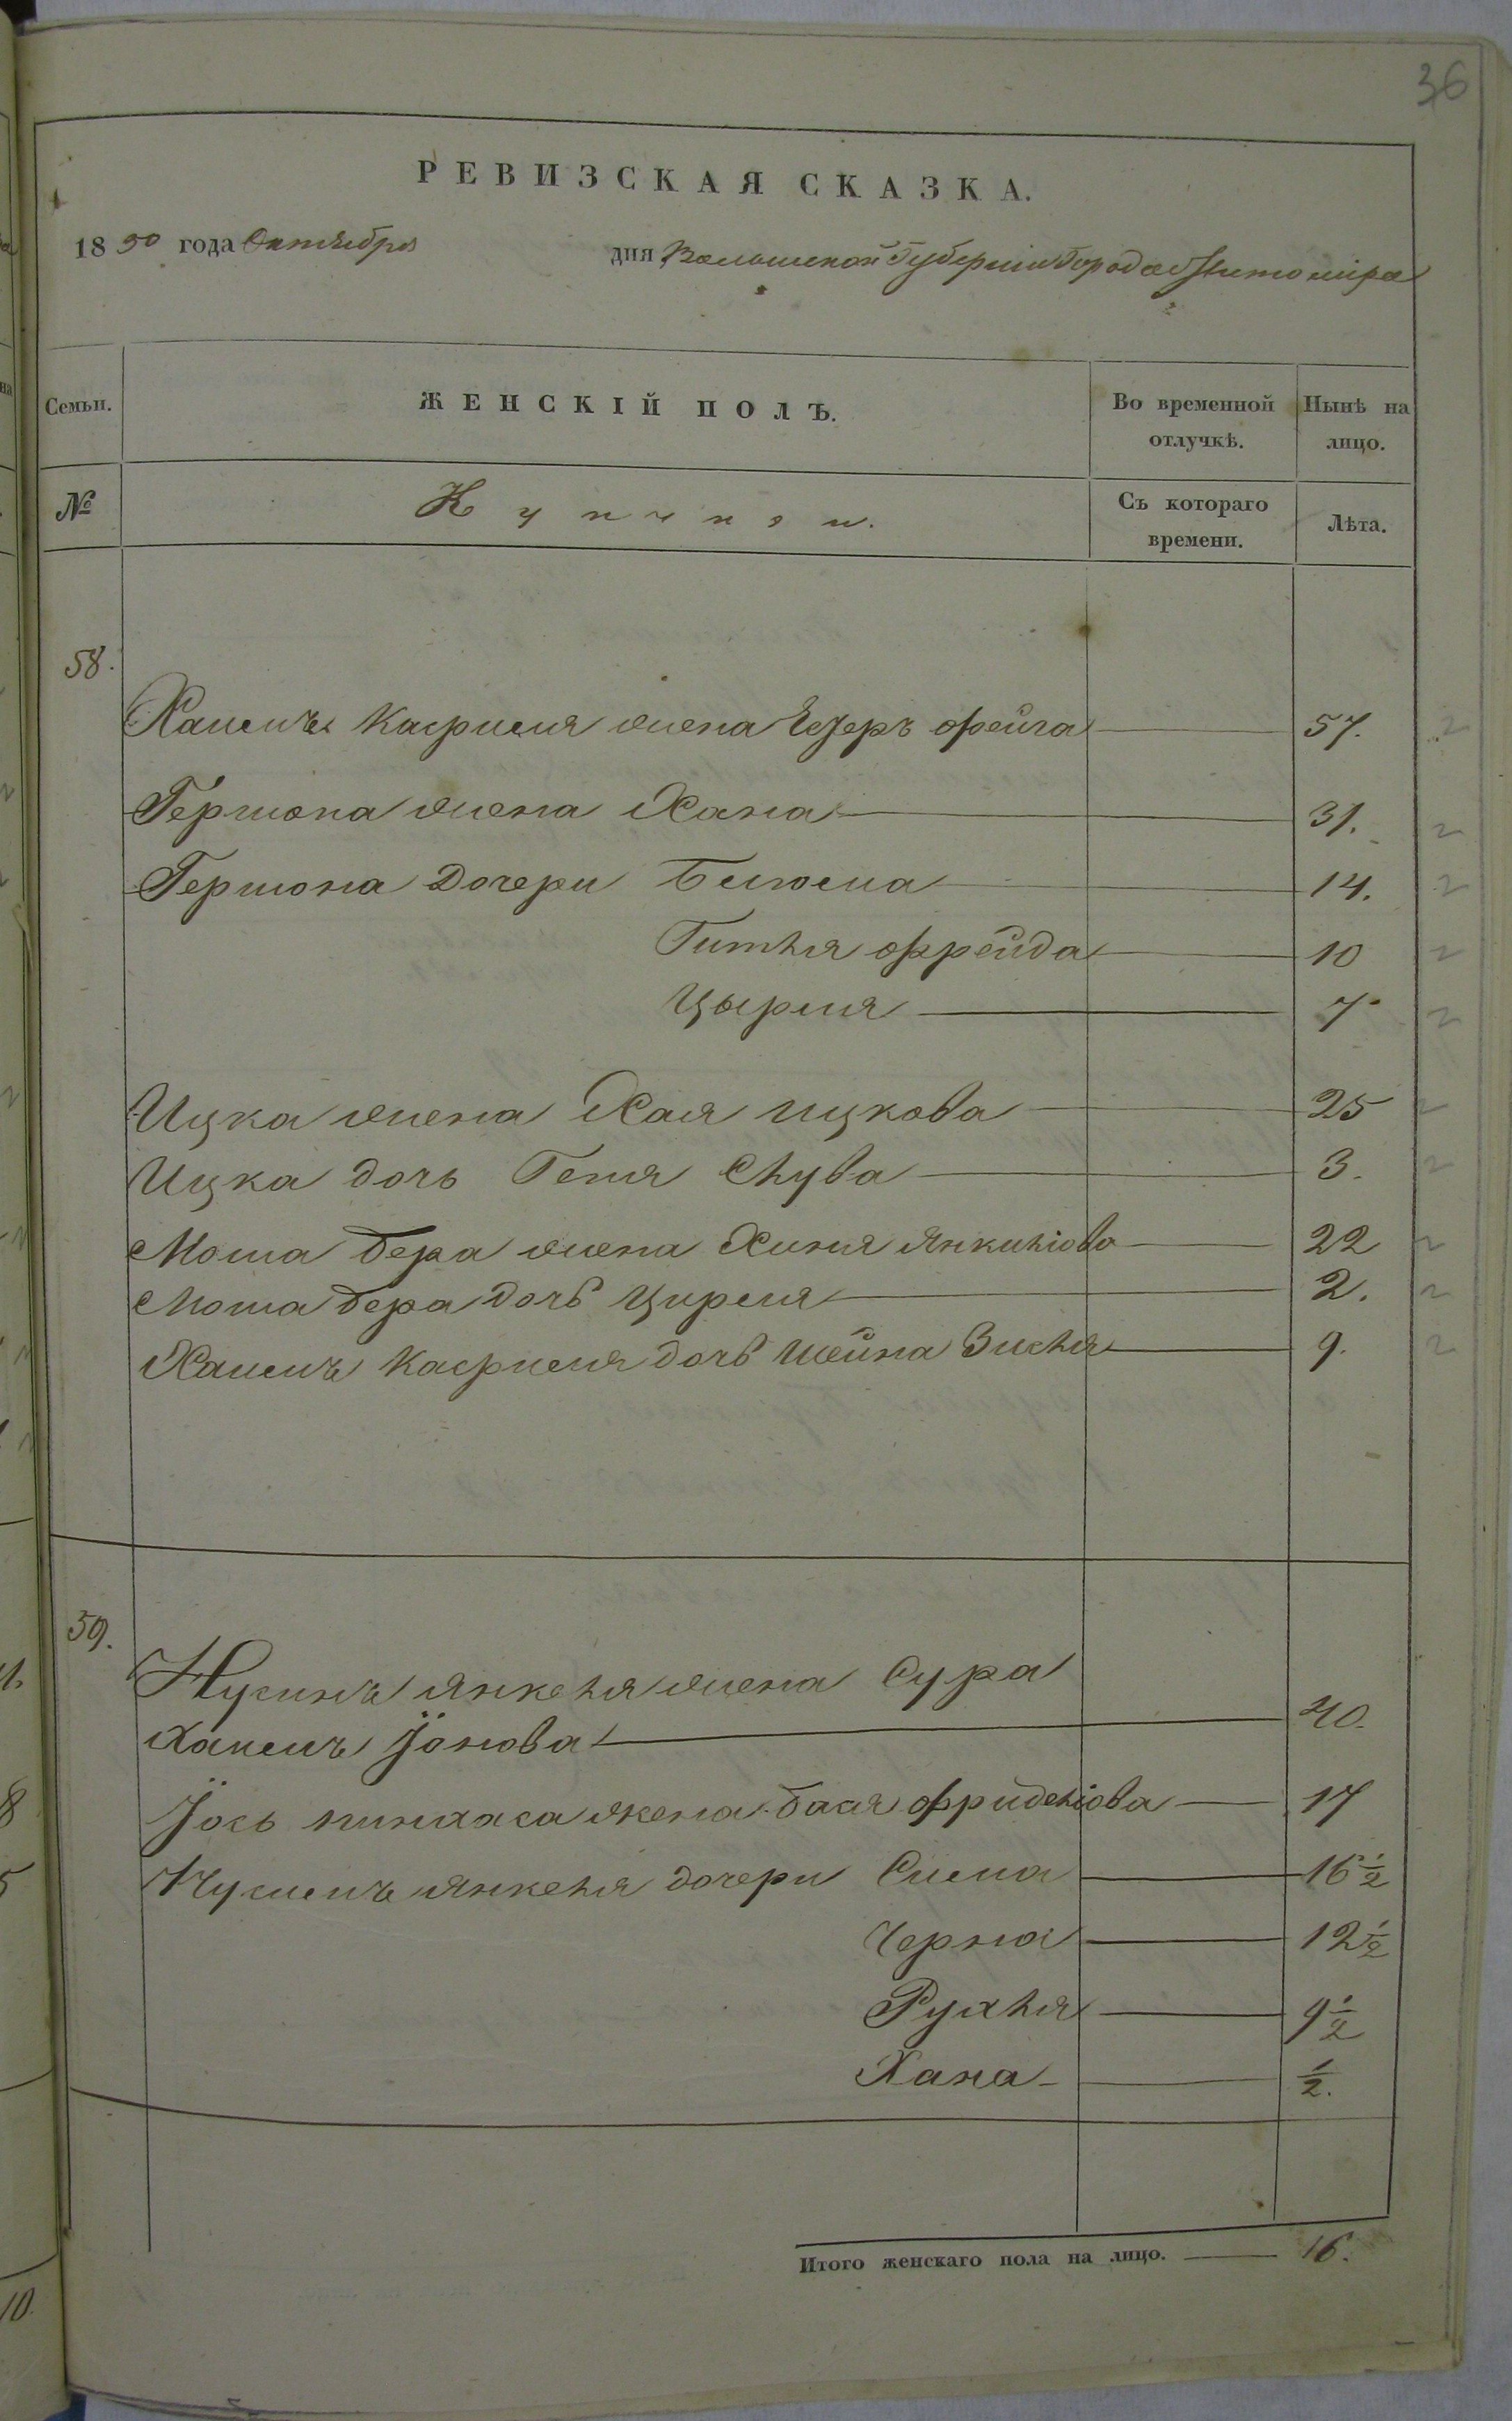 36
РЕВИЗСКАЯ СКАЗКА.
1850 года Октября дня Волынской Губернии Города Житомира
Семьи. ЖЕНСКІЙ ПОЛЪ. Во временной отлучкѣ. Нынѣ на лицо.
№ Съ котораго времени. Лѣта.
58.
Хаимъ Касриеля жена Эстеръ фейга 57.
Гершона жена Хана 31.
Гершона Дочери Блюма 14.
Гитля фрейда 10
Цырля 7
Ицка жена Хая ицкова 25
Ицка дочь Геня Слува 3.
Моша бера жена Хиня Янкилiова 22
Моша бера дочь Циреля 2.
Хаимъ Касриеля дочь шейна Зисля 9.
59.
Нусинъ Янкеля жена Сура
Хаимъ Їонова 40.
Їось пинхаса жена бася фриделiова 17
Нусимъ Янкеля дочери Сима 16 1/2
Черна 12 1/2
Рухля 9 1/2
Хана 1/2.
Итого женскаго пола на лицо. 16.